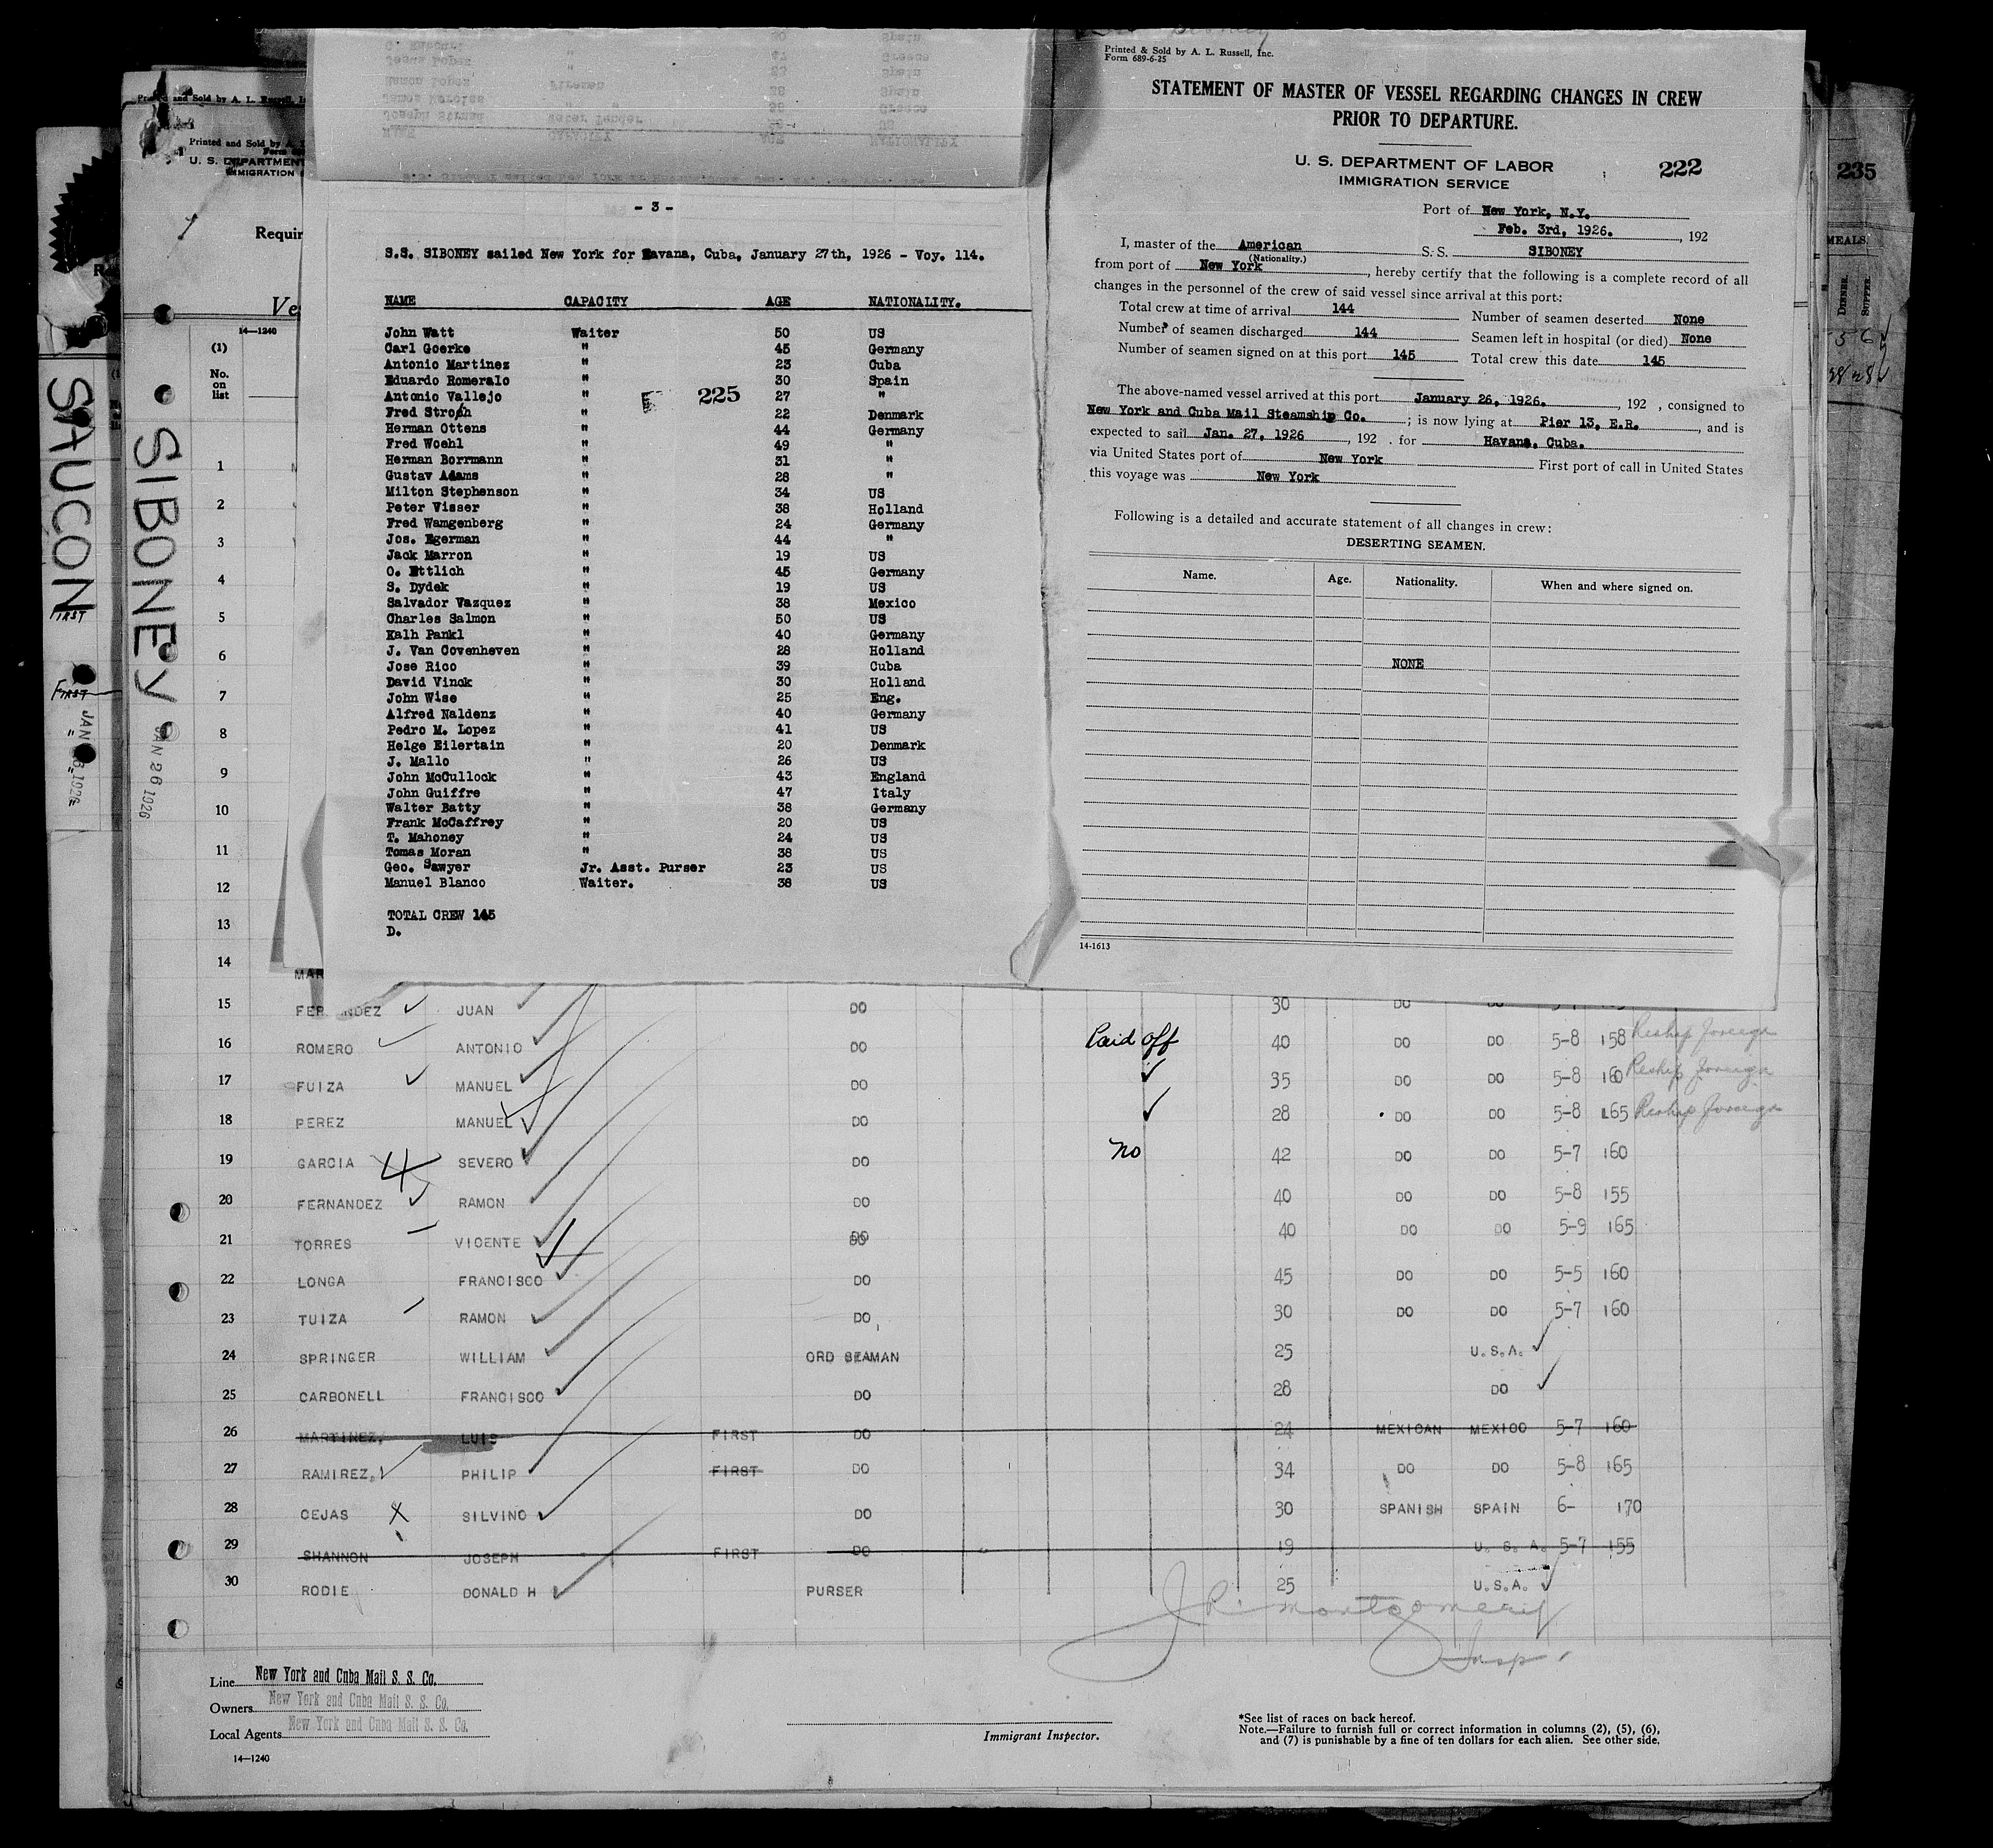 - 3 -
S.S. SIBONEY sailed New York for Havana, Cuba, January 27th, 1926 - Voy. 114.
NAME CAPACITY AGE NATIONALITY.
John Watt Waiter 50 US
Carl Goerke " 45 Germany
Antonio Martinez " 23 Cuba
Eduardo Romeralo " 30 Spain
Antonio Vallejo " 27 "
225
Fred Stroph " 22 Denmark
Herman Ottens " 44 Germany
Fred Woehl " 49 "
Herman Borrmann " 31 "
Gustav Adams " 28 "
Milton Stephenson " 34 US
Peter Visser " 38 Holland
Fred Wamgenberg " 24 Germany
Jos. Egerman " 44 "
Jack Marron " 19 US
O. Ettlich " 45 Germany
S. Dydek " 19 US
Salvador Vazquez " 38 Mexico
Charles Salmon " 50 US
Kalh Pankl " 40 Germany
J. Van Covenheven " 28 Holland
Jose Rico " 39 Cuba
David Vinck " 30 Holland
John Wise " 25 Eng.
Alfred Naldenz " 40 Germany
Pedro M. Lopez " 41 US
Helge Eilertain " 20 Denmark
J. Mallo " 26 US
John McCullock " 43 England
John Guiffre " 47 Italy
Walter Batty " 38 Germany
Frank McCaffrey " 20 US
T. Mahoney " 24 US
Tomas Moran " 38 US
Geo. Sawyer Jr. Asst. Purser 23 US
Manuel Blanco Waiter. 38 US
TOTAL CREW 145
D.
Printed & Sold by A. L. Russell, Inc.
Form 689-6-25
STATEMENT OF MASTER OF VESSEL REGARDING CHANGES IN CREW
PRIOR TO DEPARTURE.
U. S. DEPARTMENT OF LABOR
IMMIGRATION SERVICE
222
Port of New York, N.Y.
Feb. 3rd, 1926. , 192
I, master of the American S. S. SIBONEY
(Nationality.)
from port of New York , hereby certify that the following is a complete record of all
changes in the personnel of the crew of said vessel since arrival at this port:
Total crew at time of arrival 144 Number of seamen deserted None
Number of seamen discharged 144 Seamen left in hospital (or died) None
Number of seamen signed on at this port 145 Total crew this date 145
The above-named vessel arrived at this port January 26, 1926. , 192 , consigned to
New York and Cuba Mail Steamship Co. ; is now lying at Pier 13, E.R. , and is
expected to sail Jan. 27, 1926 , 192 . for Havana, Cuba.
via United States port of New York First port of call in United States
this voyage was New York
Following is a detailed and accurate statement of all changes in crew:
DESERTING SEAMEN.
Name. Age. Nationality. When and where signed on.
NONE
14-1613
235
MEALS.
DINNER. SUPPER.
Printed and Sold by A. L. Russell, In
Printed and Sold by A.
U. S. DEPARTMENT
IMMIGRATION
Requir
Ve
14—1240
(1)
No.
on
list
SAUCON
FIRST
FIRST
SIBONEY
JAN 26 1926
1
2
3
4
5
6
7
8
9
10
11
12
13
14 MAR
15 FERNANDEZ JUAN DO 30 DO DO
16 ROMERO ANTONIO DO Paid off 40 DO DO 5-8 158 Reship foreign
17 FUIZA MANUEL DO 35 DO DO 5-8 160 Reship foreign
18 PEREZ MANUEL DO 28 DO DO 5-8 165 Reship foreign
19 GARCIA SEVERO DO no 42 DO DO 5-7 160
20 FERNANDEZ RAMON DO 40 DO DO 5-8 155
21 TORRES VICENTE DO 40 DO DO 5-9 165
22 LONGA FRANCISCO DO 45 DO DO 5-5 160
23 TUIZA RAMON DO 30 DO DO 5-7 160
24 SPRINGER WILLIAM ORD SEAMAN 25 U.S.A.
25 CARBONELL FRANCISCO DO 28 DO
26 MARTINEZ, LUIS FIRST DO 24 MEXICAN MEXICO 5-7 160
27 RAMIREZ, PHILIP FIRST DO 34 DO DO 5-8 165
28 CEJAS X SILVINO DO 30 SPANISH SPAIN 6- 170
29 SHANNON JOSEPH FIRST DO 19 U. S. A. 5-7 155
30 RODIE DONALD H PURSER 25 U.S.A.
J R Montgomery
Insp.
Line New York and Cuba Mail S. S. Co.
Owners New York and Cuba Mail S. S. Co.
Local Agents New York and Cuba Mail S. S. Co.
14—1240
Immigrant Inspector.
*See list of races on back hereof.
Note.—Failure to furnish full or correct information in columns (2), (5), (6),
and (7) is punishable by a fine of ten dollars for each alien. See other side.